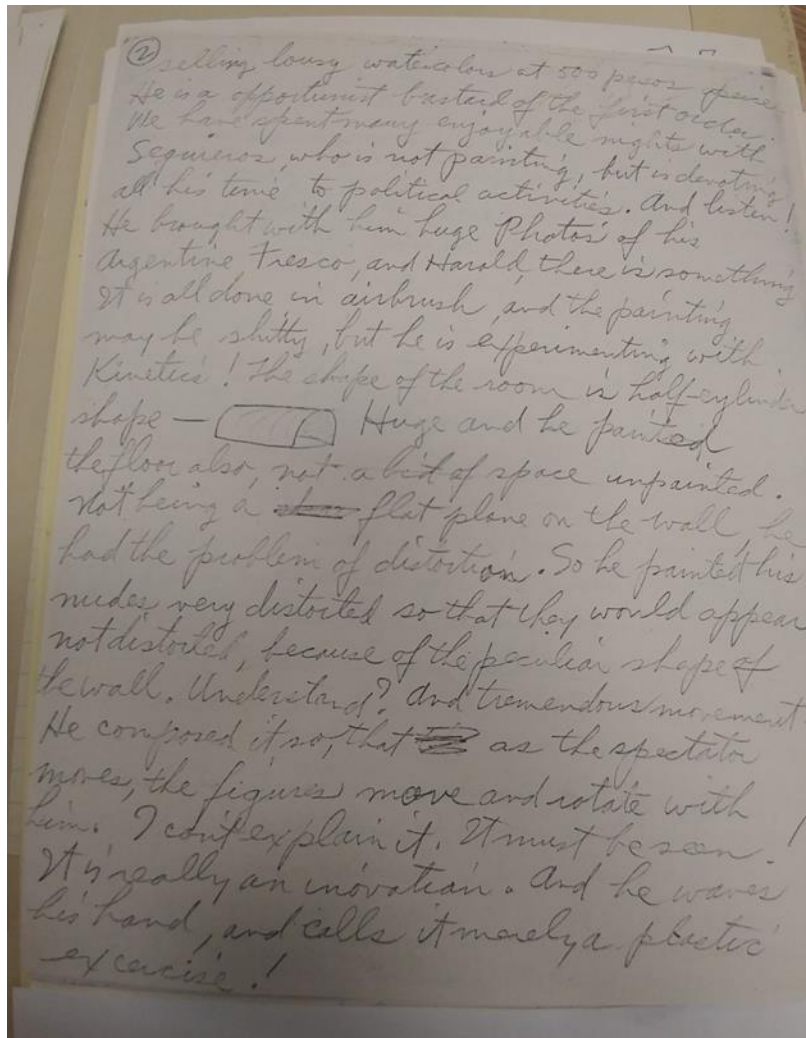 ② selling lousy watercolors at 500 pesos apiece
He is a opportunist bastard of the first order.
We have spent many enjoyable nights with
Sequieros, who is not painting, but is devoting
all his time to political activities. And listen!
He brought with him huge Photos of his
Argentine Fresco, and Harold, there is something
It is all done in airbrush, and the painting
may be shitty, but he is experimenting with
Kinetics! The shape of the room is half-cylinder
shape — Huge and he painted
the floor also, not a bit of space unpainted.
Not being a flat plane on the wall, he
had the problem of distortion. So he painted his
nudes very distorted so that they would appear
not distorted, because of the peculiar shape of
the wall. Understand? And tremendous movement
He composed it so, that as the spectator
moves, the figures move and rotate with
him. I can't explain it. It must be seen.
It is really an inovation. And he waves
his hand, and calls it merely a plastic
excercise!